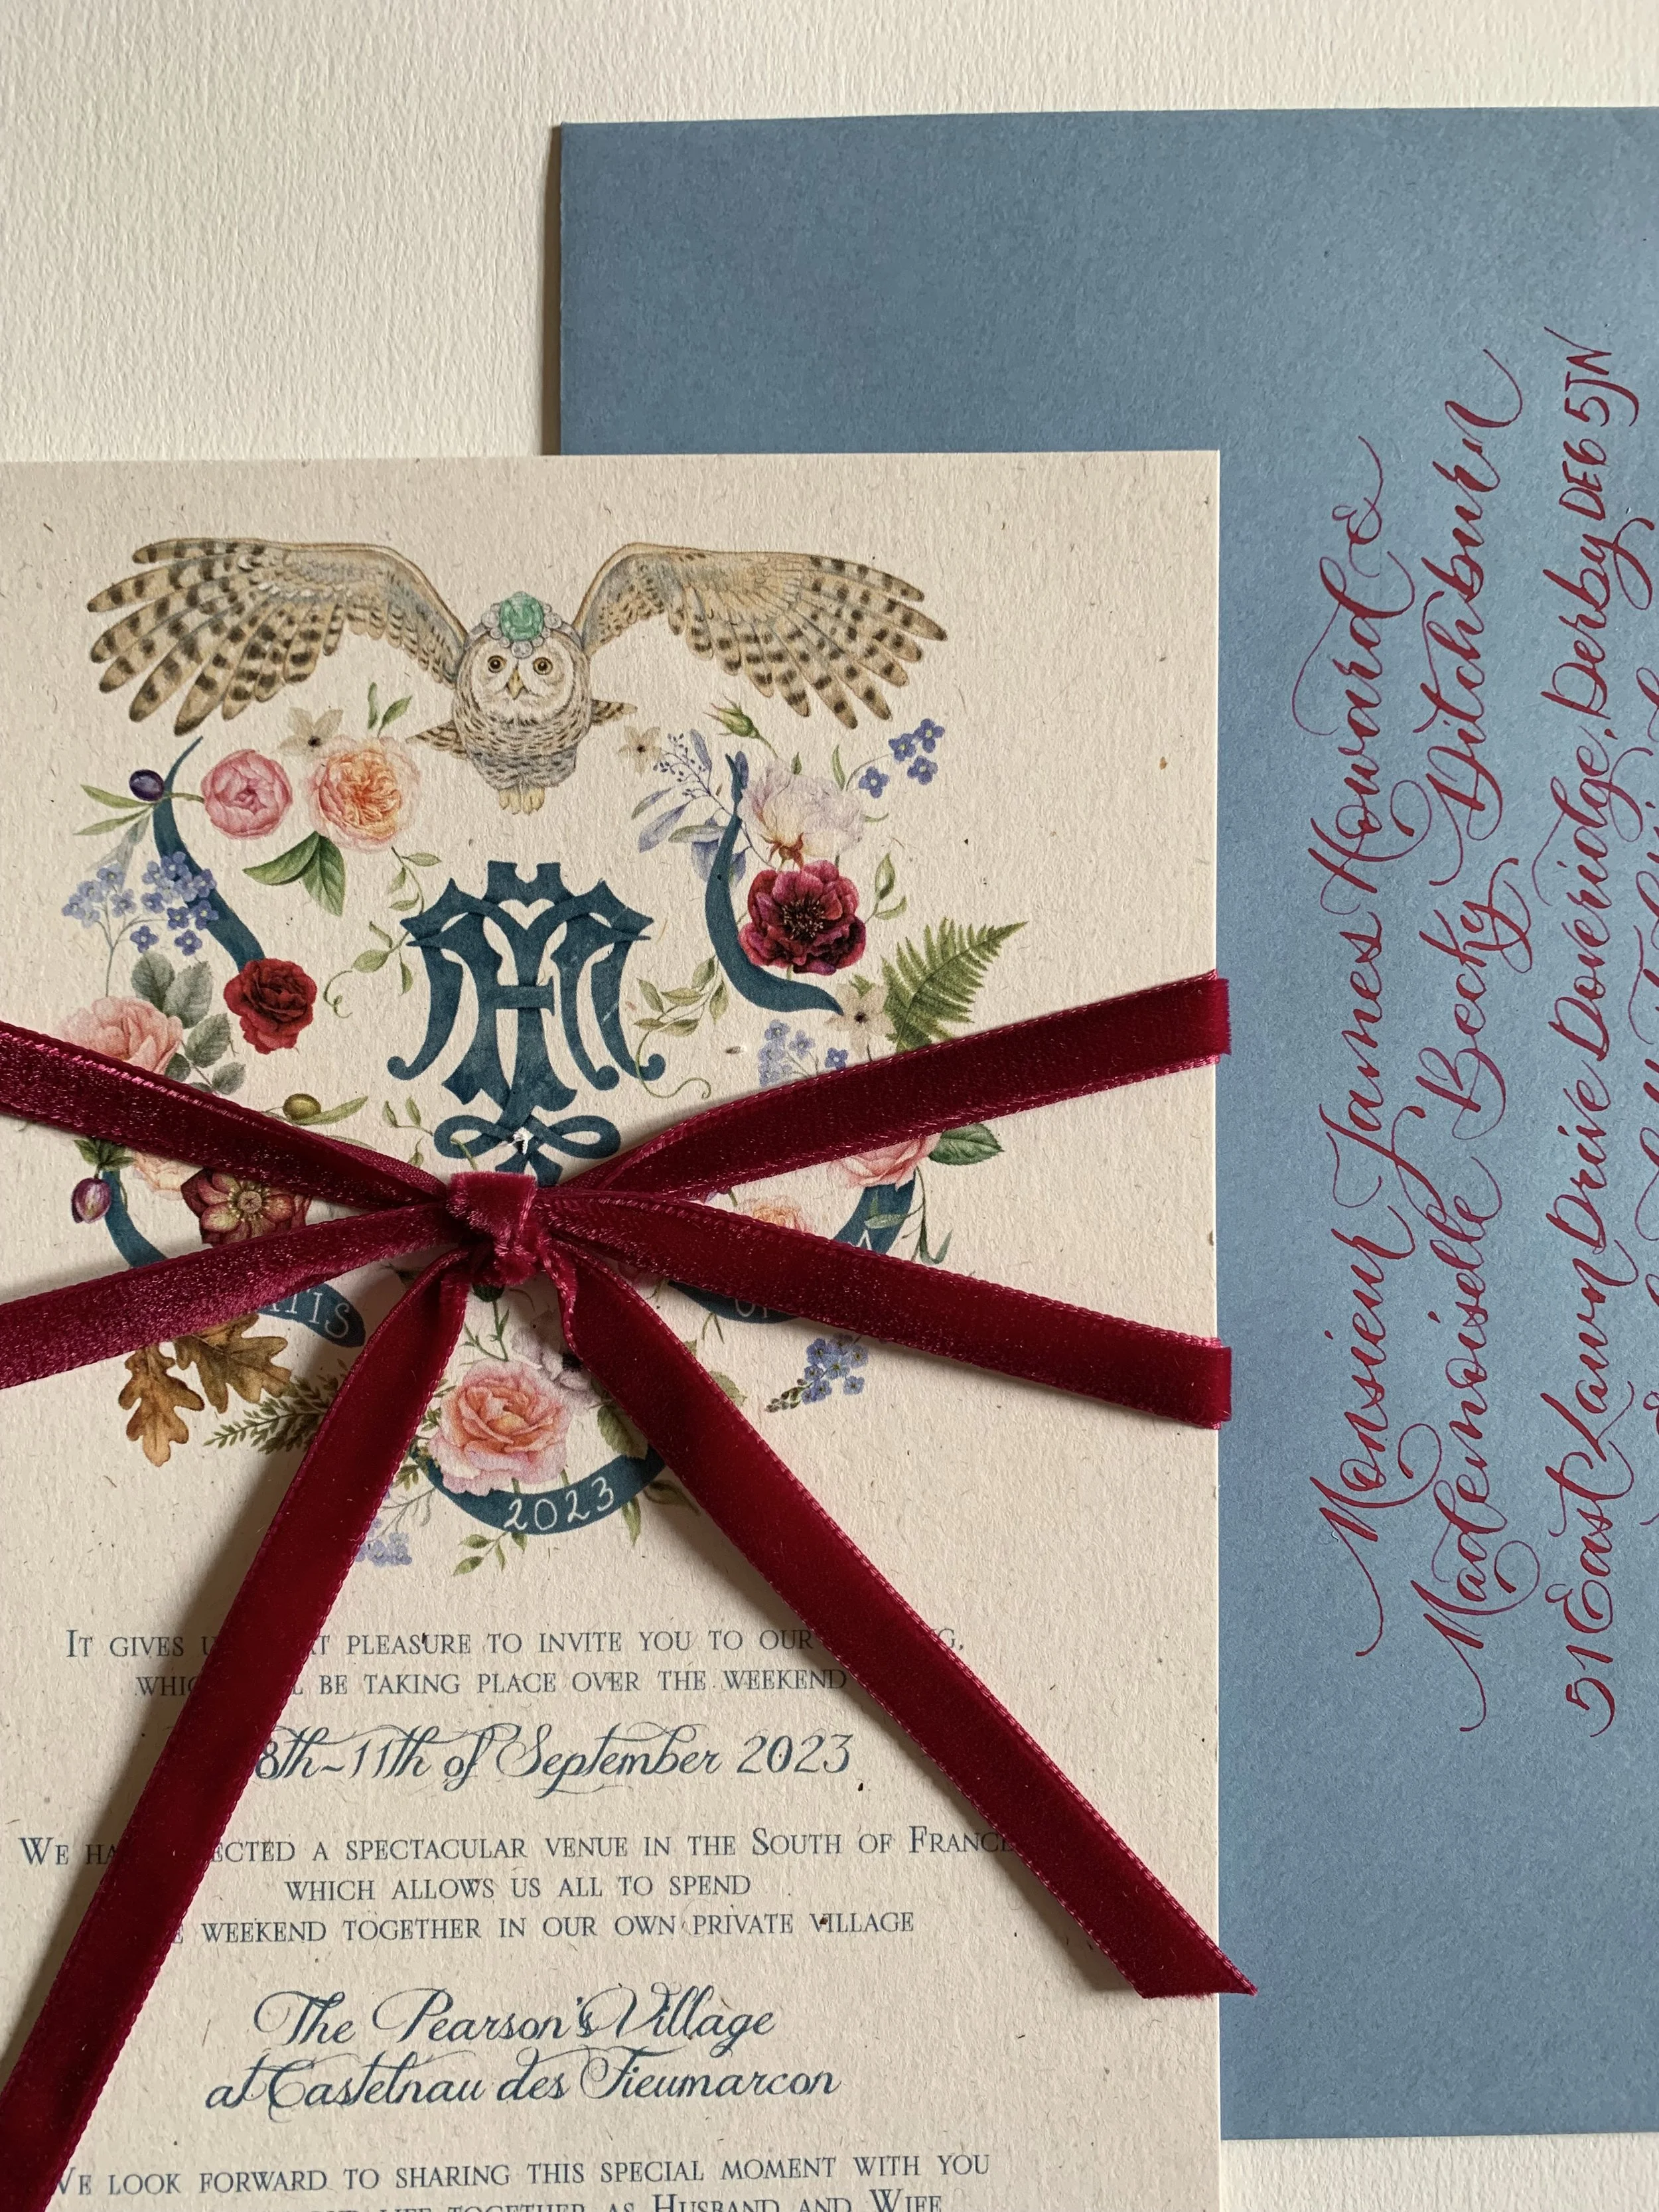 ATIS
2023
IT GIVES U AT PLEASURE TO INVITE YOU TO OUR G,
WHIC L BE TAKING PLACE OVER THE WEEKEND
8th~11th of September 2023
WE HA ECTED A SPECTACULAR VENUE IN THE SOUTH OF FRANCE
WHICH ALLOWS US ALL TO SPEND
E WEEKEND TOGETHER IN OUR OWN PRIVATE VILLAGE
The Pearson's Village
at Castelnau des Fieumarcon
WE LOOK FORWARD TO SHARING THIS SPECIAL MOMENT WITH YOU
LIFE TOGETHER AS HUSBAND AND WIFE
Monsieur James Howard &
Mademoiselle Becky Ditchburn
51 East Lawn Drive Doveridge, Derby DE6 5JN